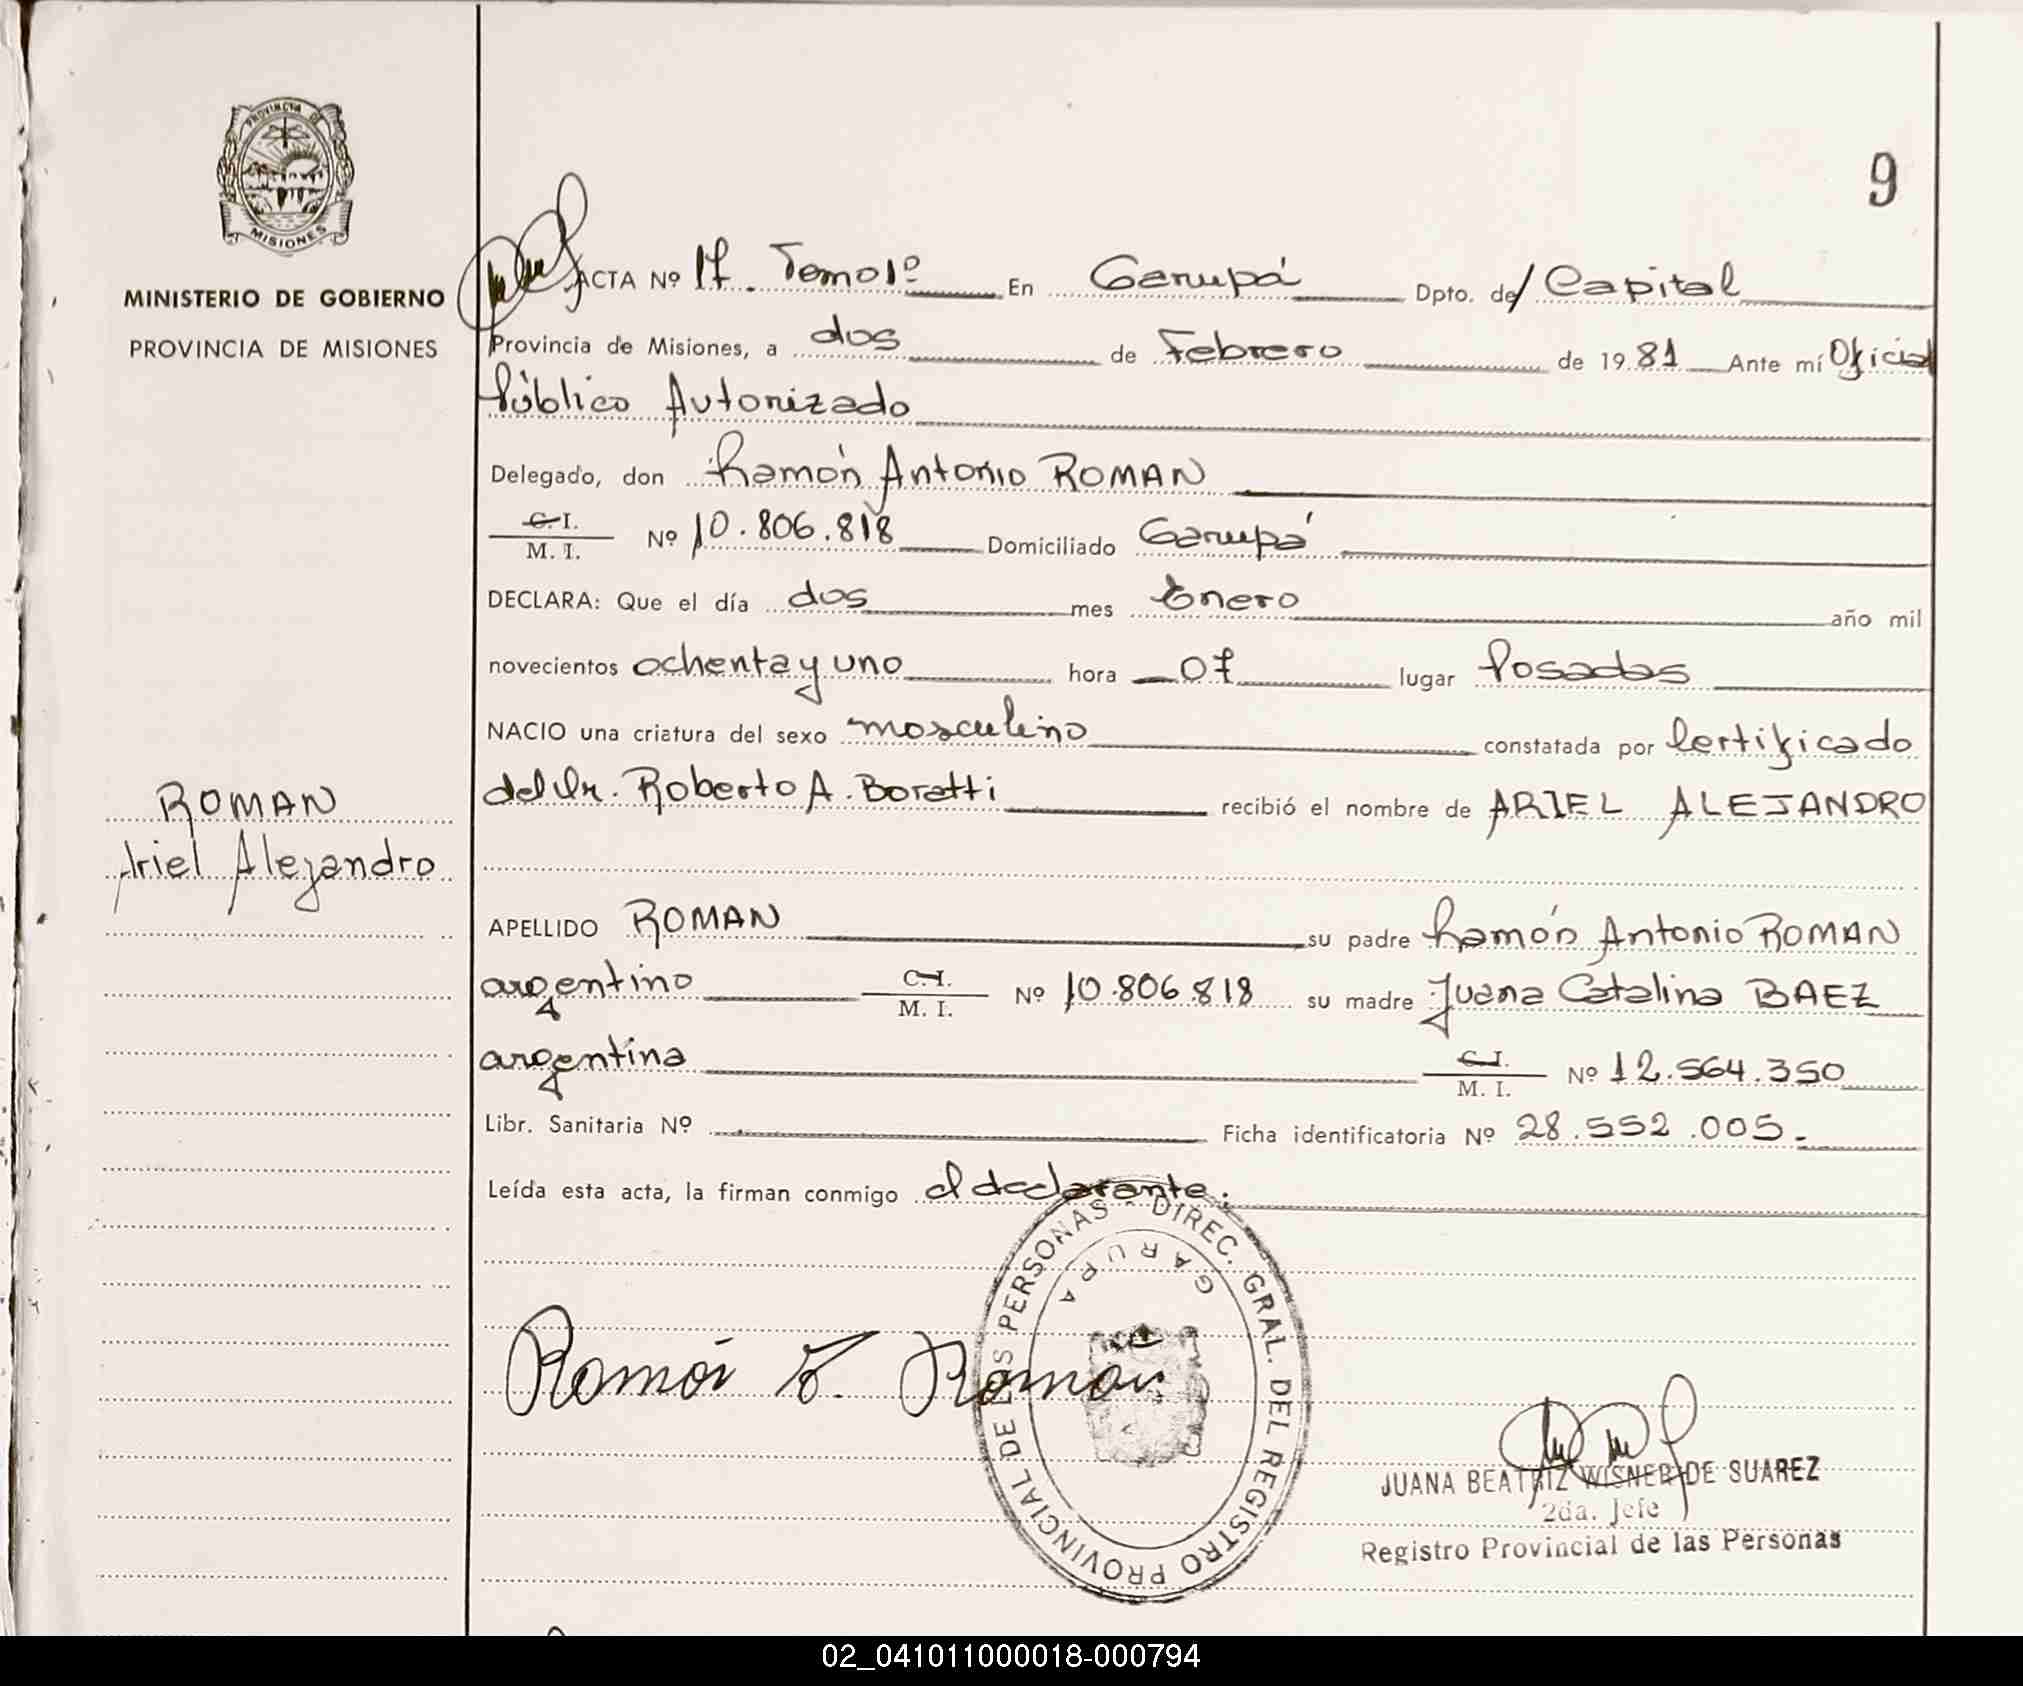 9
PROVINCIA DE
MISIONES
MINISTERIO DE GOBIERNO
PROVINCIA DE MISIONES
ACTA Nº 17. Tomo 1º En Garupá Dpto. de/ Capital
Provincia de Misiones, a dos de Febrero de 1981 Ante mí Oficial
Público Autorizado
Delegado, don Ramón Antonio ROMAN
C. I.
M. I. Nº 10.806.818 Domiciliado Garupá
DECLARA: Que el día dos mes Enero año mil
novecientos ochenta y uno hora 07 lugar Posadas
NACIO una criatura del sexo masculino constatada por Certificado
del Dr. Roberto A. Boratti recibió el nombre de ARIEL ALEJANDRO
ROMAN
Ariel Alejandro
APELLIDO ROMAN su padre Ramón Antonio ROMAN
argentino C. I.
M. I. Nº 10.806.818 su madre Juana Catalina BAEZ
argentina C. I.
M. I. Nº 12.564.350
Libr. Sanitaria Nº Ficha identificatoria Nº 28.552.005.
Leída esta acta, la firman conmigo el declarante.
DIREC. GRAL. DEL REGISTRO PROVINCIAL DE LAS PERSONAS
GARUPA
Ramón Roman
JUANA BEATRIZ WISNER DE SUAREZ
2da. Jefe
Registro Provincial de las Personas
02_041011000018-000794